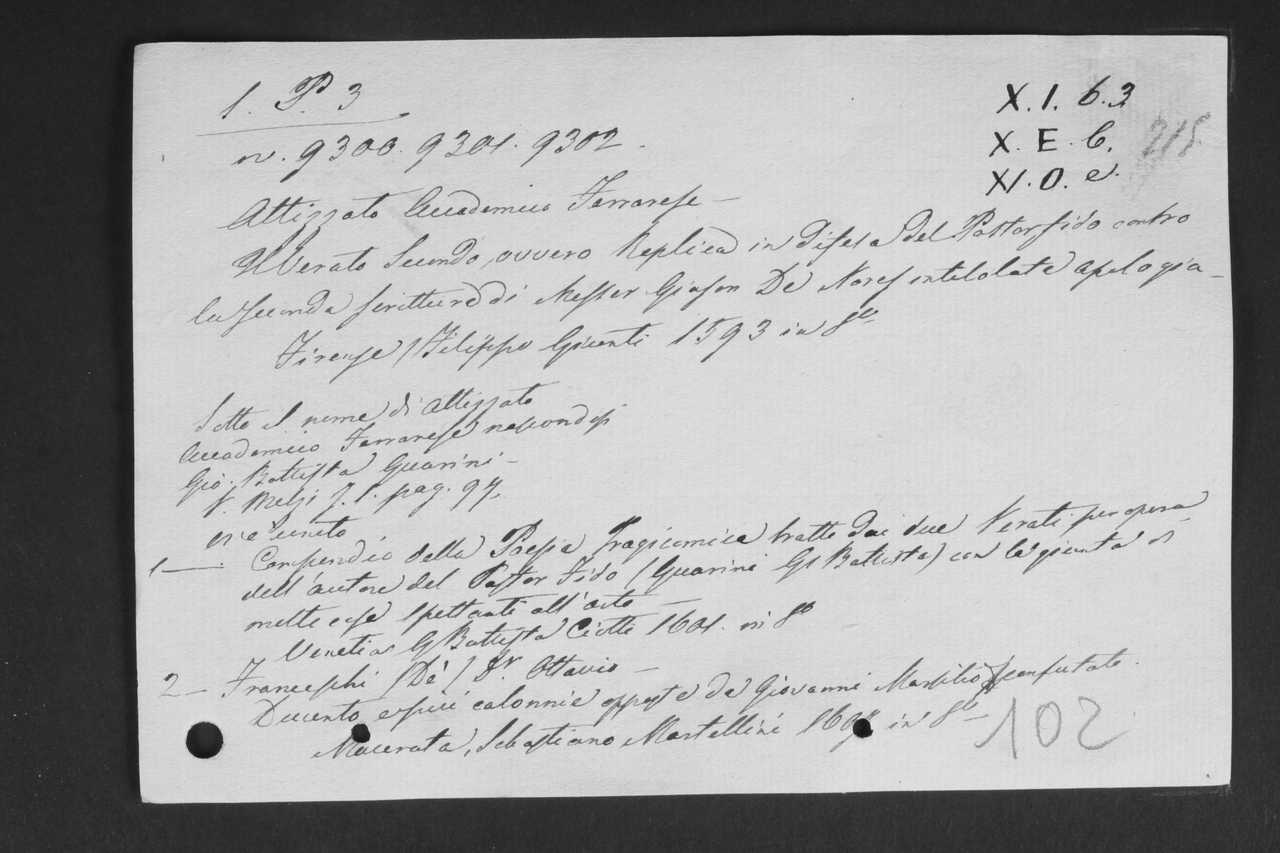 1. P. 3
X. 1. b. 3
n. 9300. 9301. 9302.
X. E. b.
215
XI. O. e.
Attizzato Accademico Ferrarese –
Il Verato Secondo, ovvero Replica in difesa del Pastorfido contro
la seconda scrittura di Messer Giason De Nores intitolata apologia –
Firenze / Filippo Giunti 1593 in 8º
Sotto il nome di Attizzato
Accademico Ferrarese nascondesi
Gio. Battista Guarini –
V. Melzi T. 1. pag. 97,
vi è unito
1 — Compendio della Poesia Tragicomica tratto dai due Verati per opera
dell'autore del Pastor Fido (Guarini G. Battista) con la giunta di
molte cose spettanti all'arte —
Venetia G Battista Ciotti 1601. in 8º
2 – Franceschi / De / Fr. Ottavio —
Duecento e più calonnie opposte da Giovanni Marsilio confutate.
Macerata, Sebastiano Martellini 1607 in 8º –
102